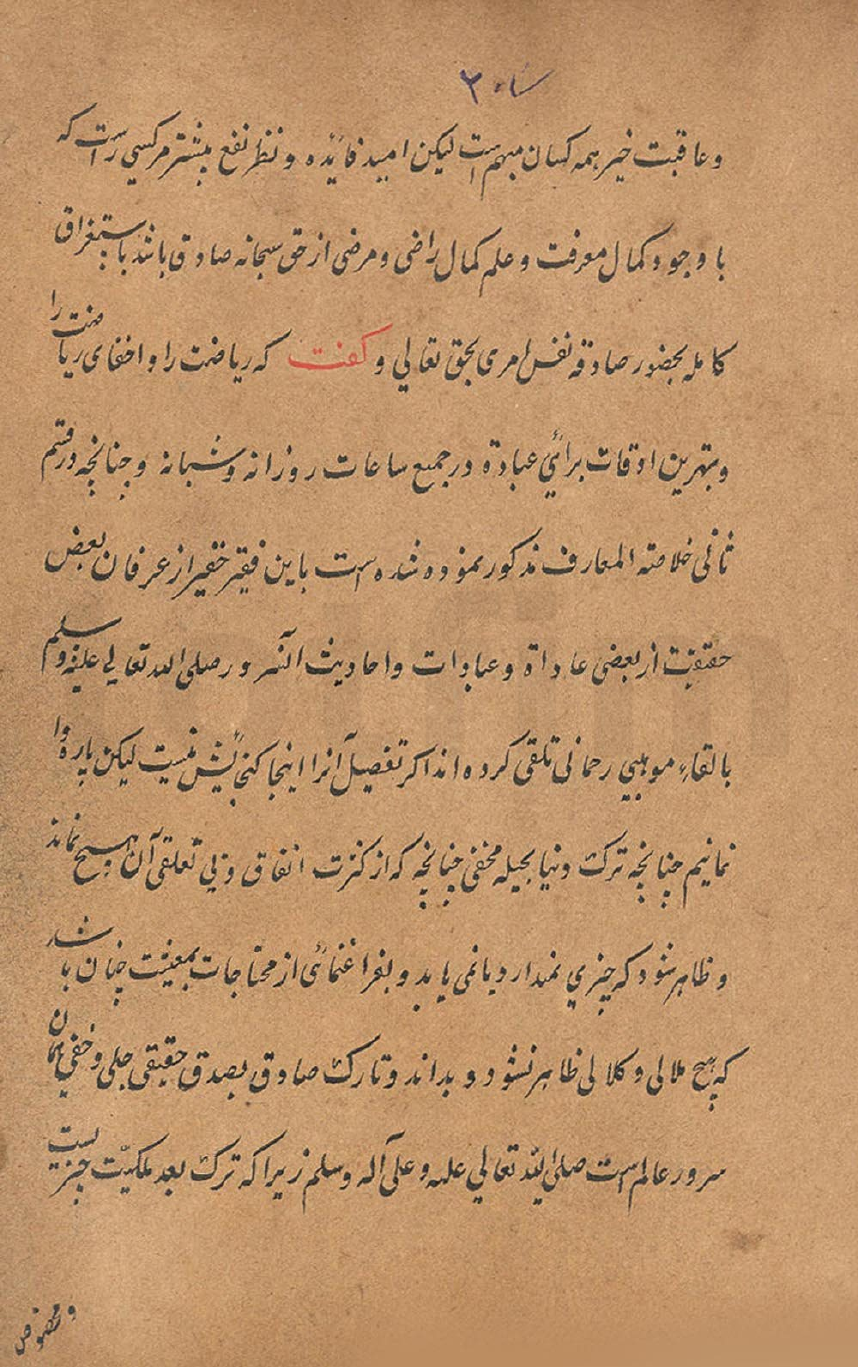 وعاقبت خیر همه کسان مبهم است لیکن امید فائده ونظر نفع بیشتر مرکسی راست که
با وجود کمال معرفت وعلم کمال راضی ومرضی از حق سبحانه صادق باشد باستغراق
کامله بحضور صادقه نفس امری بحق تعالی و کفت که ریاضت را واخفای ریاضت را
وبهترین اوقات برائی عبادة در جمیع ساعات روزانه وشبانه وچنانچه در قسم
ثانی خلاصة المعارف مذکور نموده شده است باین فقیر حقیر از عرفان بعض
حقیقت از بعضی عاداة وعبادات واحادیث آنسرور صلی الله تعالی علیه وسلم
بالقاءِ موهبی رحمانی تلقی کرده اند اکر تفصیل آنرا اینجا کنجایش نیست لیکن پاره وا
نمائیم چنانچه ترک دنیا بحیله مخفی چنانچه که از کثرت انفاق وبی تعلقی آن هیچ نماند
وظاهر شود که چیزی ندارد یا نمی یابد وبفراغنائی از محتاجات بمعیشت چنان باشد
که هیچ ملالی وکلالی ظاهر نشود وبداند وتارک صادق بصدق حقیقی جلی وخفی همان
سرور عالم است صلی الله تعالی علیه وعلی آله وسلم زیرا که ترک بعد ملکیت چیزیست